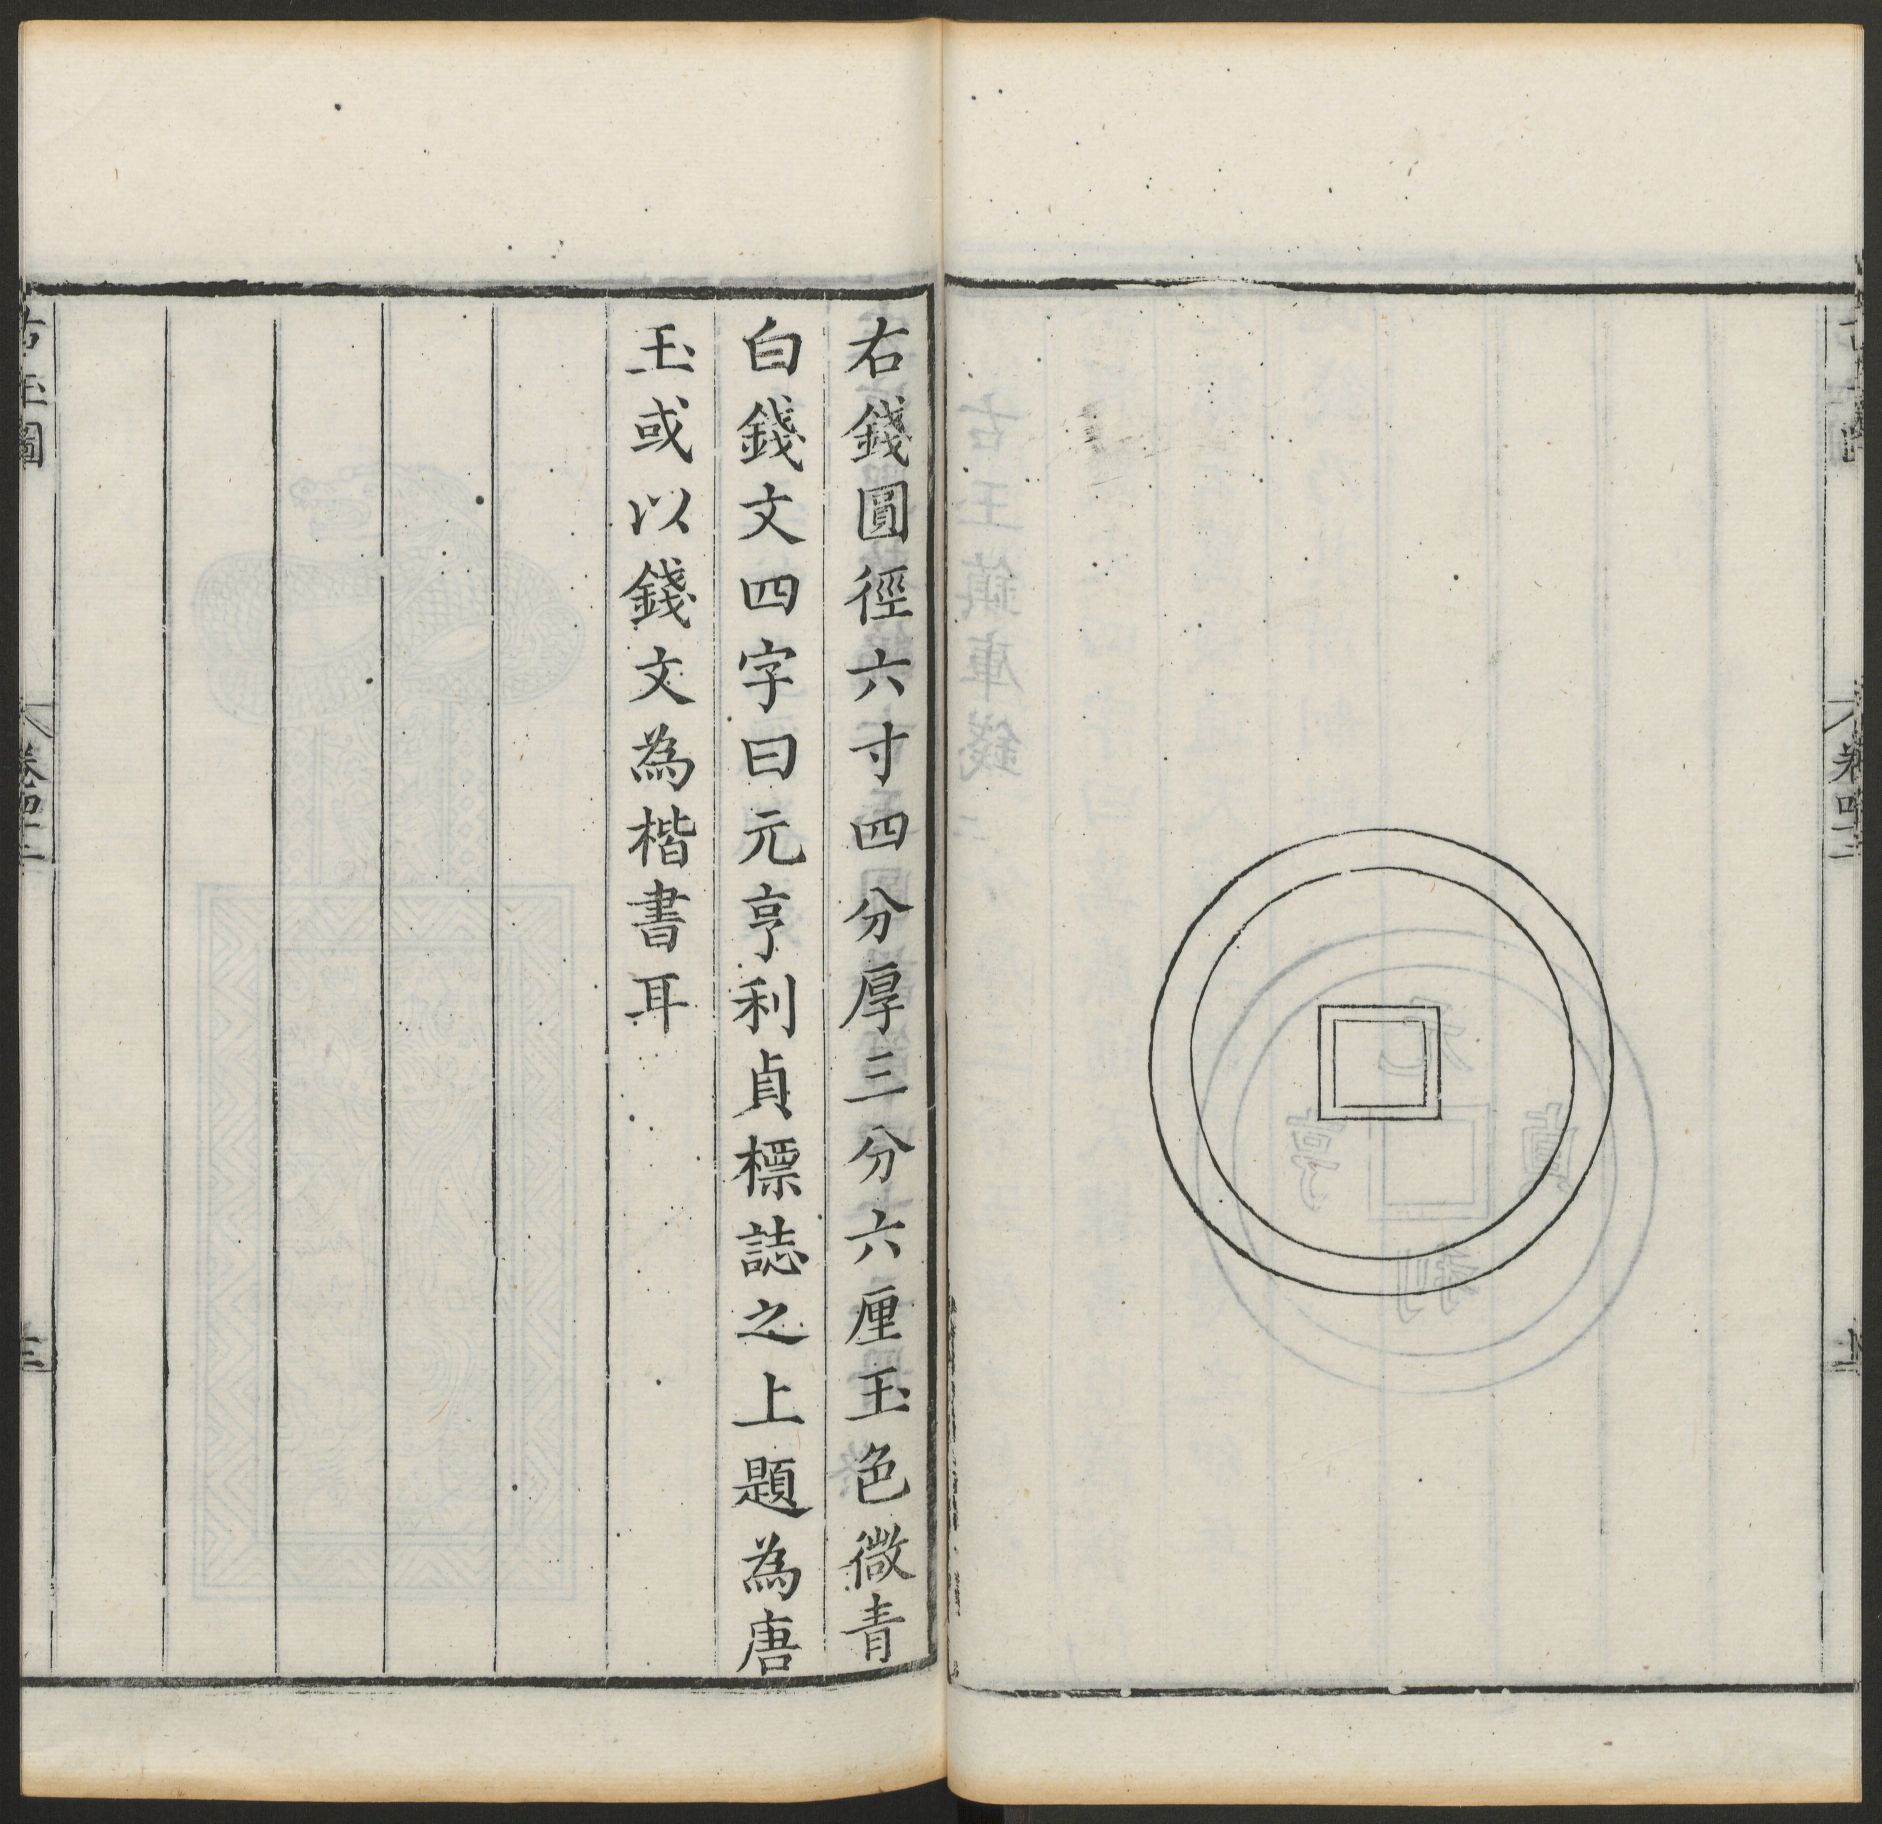 右錢圓徑六寸四分厚三分六厘玉色微青
白錢文四字曰元亨利貞標誌之上題為唐
玉或以錢文為楷書耳
古玉圖
卷四十二
三